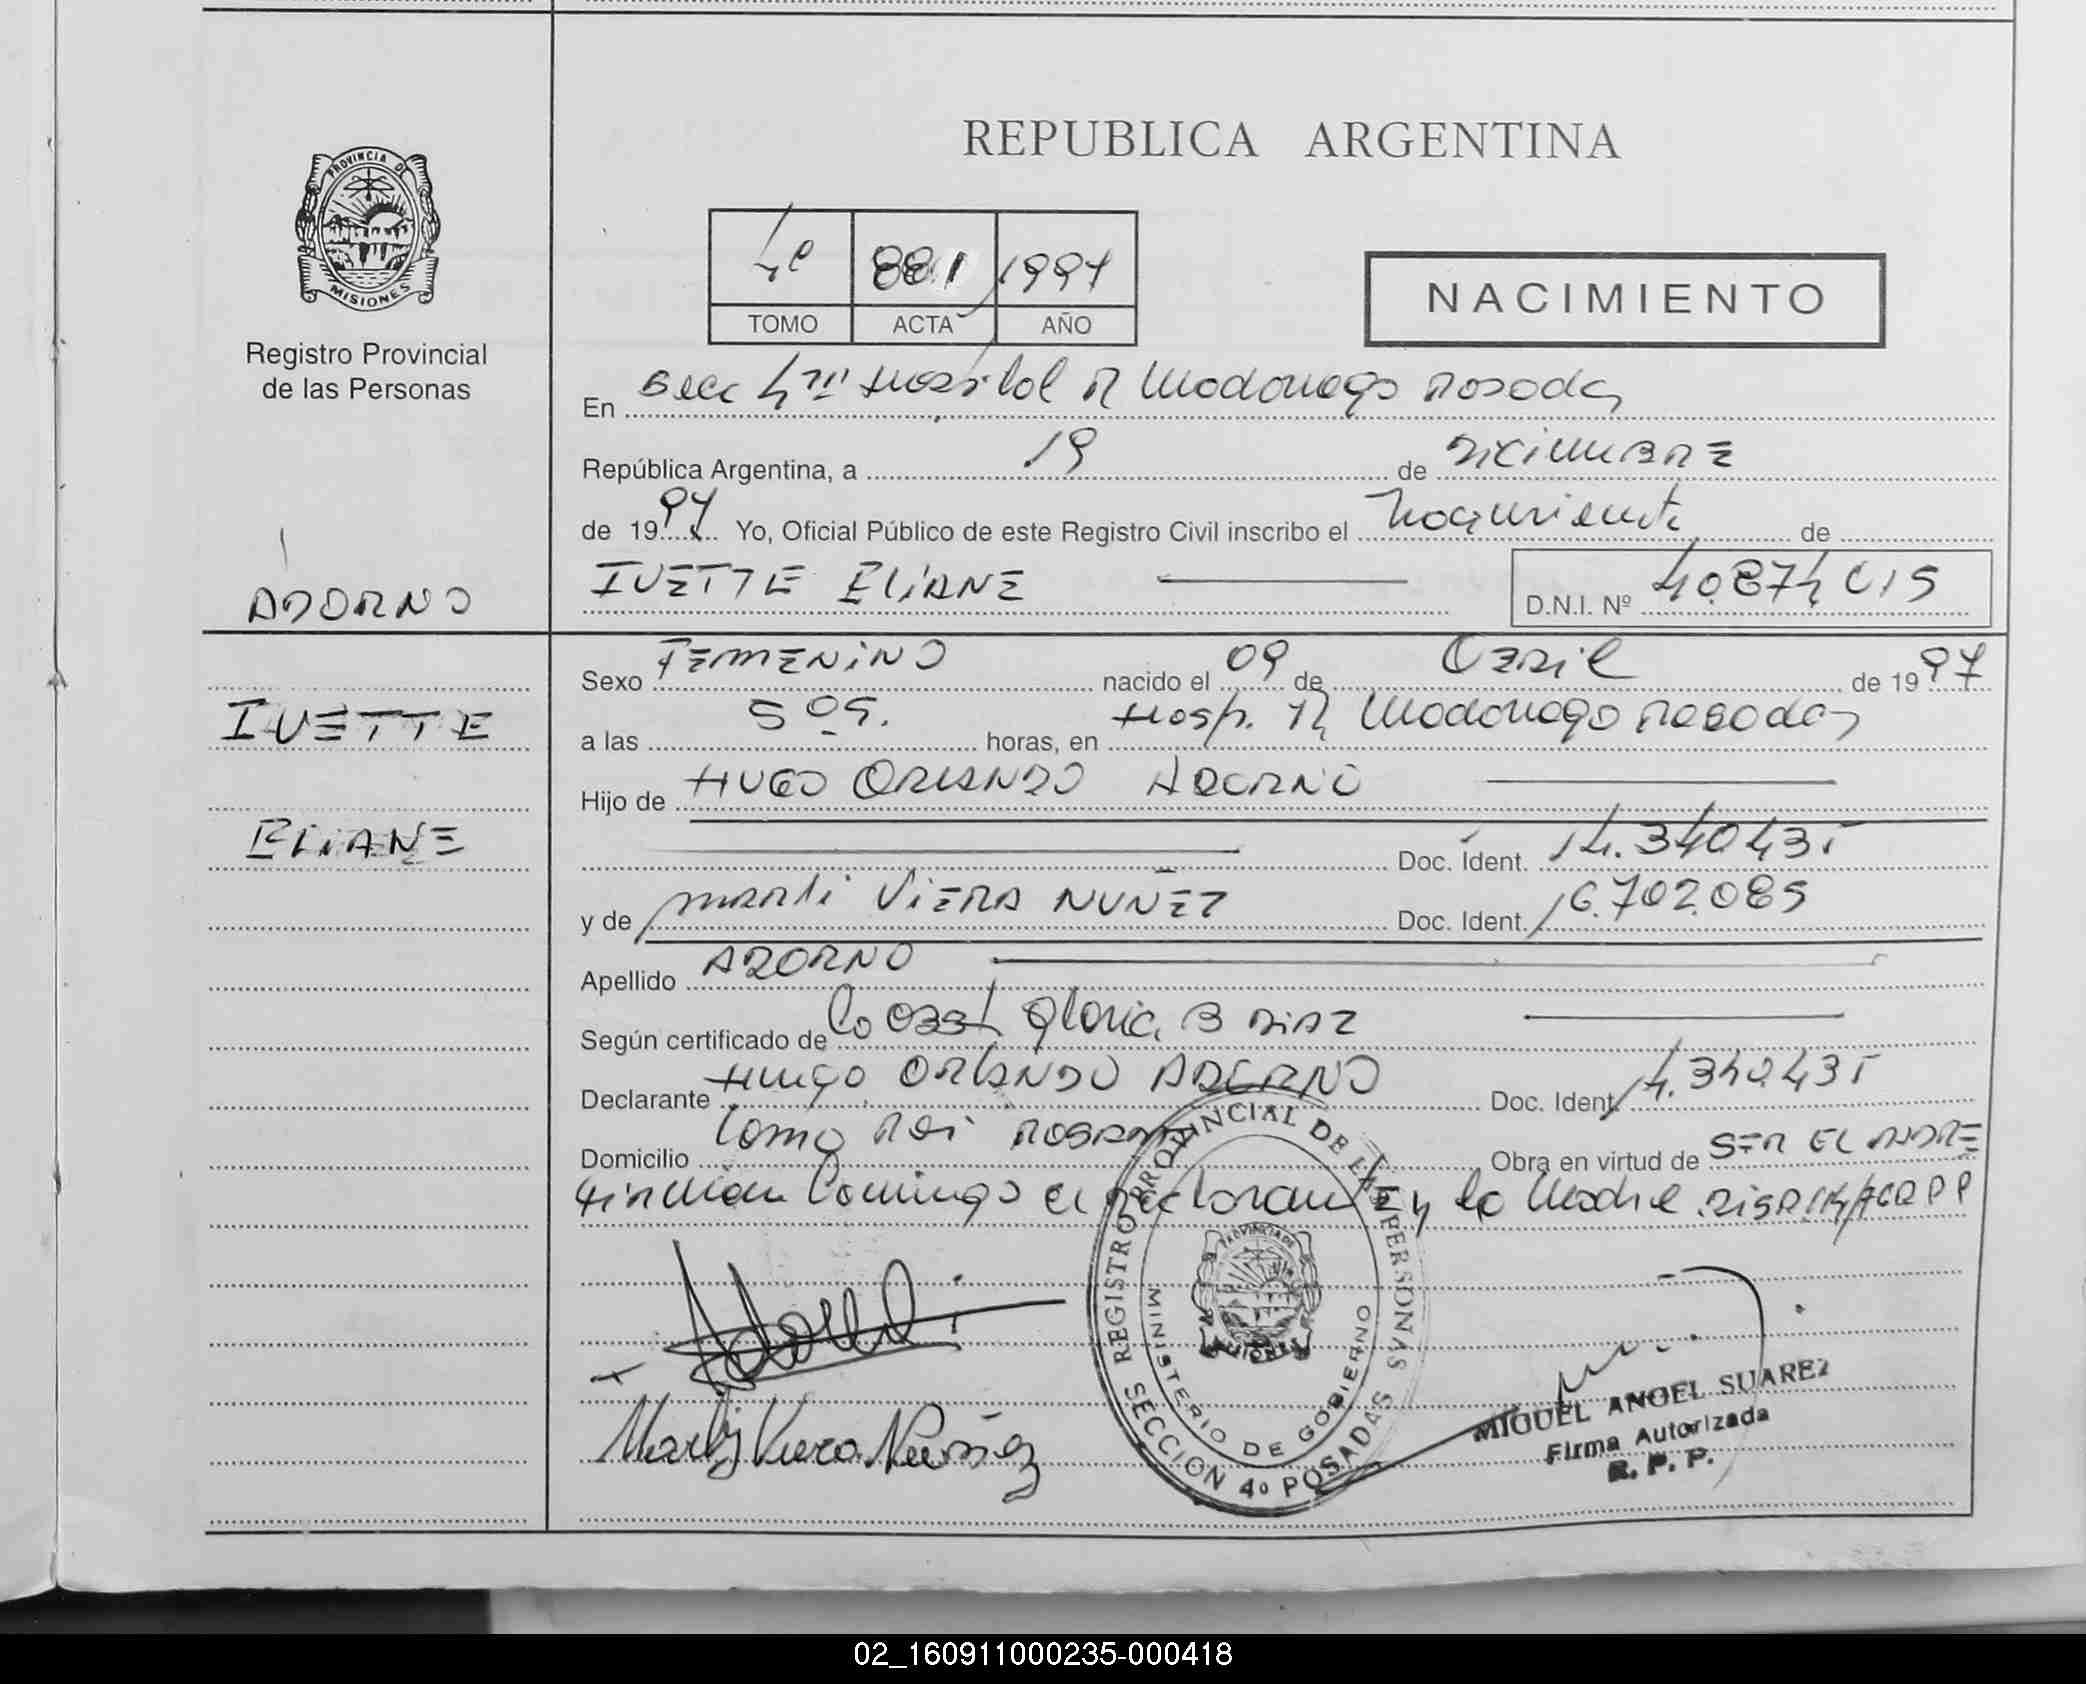 REPUBLICA ARGENTINA
PROVINCIA DE
MISIONES
Registro Provincial
de las Personas
4º 881 1997
TOMO ACTA AÑO
NACIMIENTO
En Secc 4ta Hospital R Madariaga Posadas
República Argentina, a 19 de DICIEMBRE
de 1997 Yo, Oficial Público de este Registro Civil inscribo el Nacimiento de
ADORNO
IVETTE ELIANE
D.N.I. Nº 40.874.015
Sexo FEMENINO nacido el 09 de de 1997
IVETTE
a las 5 05. horas, en Hosp. R Madariaga Posadas
Hijo de HUGO ORLANDO ADORNO
ELIANE
Doc. Ident. 14.340.435
y de MARLI VIERA NUÑEZ Doc. Ident. 16.702.085
Apellido ADORNO
Según certificado de La Obst Gloria B DIAZ
Declarante Hugo ORLANDO ADORNO Doc. Ident. 14.340.435
Domicilio Lomas POSADAS Obra en virtud de SER EL PADRE
Firman el declarante y la Madre
Marly Viera Núñez
REGISTRO PROVINCIAL DE LAS PERSONAS
MINISTERIO DE GOBIERNO
SECCION 4º POSADAS
MIGUEL ANGEL SUAREZ
Firma Autorizada
R. P. P.
02_160911000235-000418